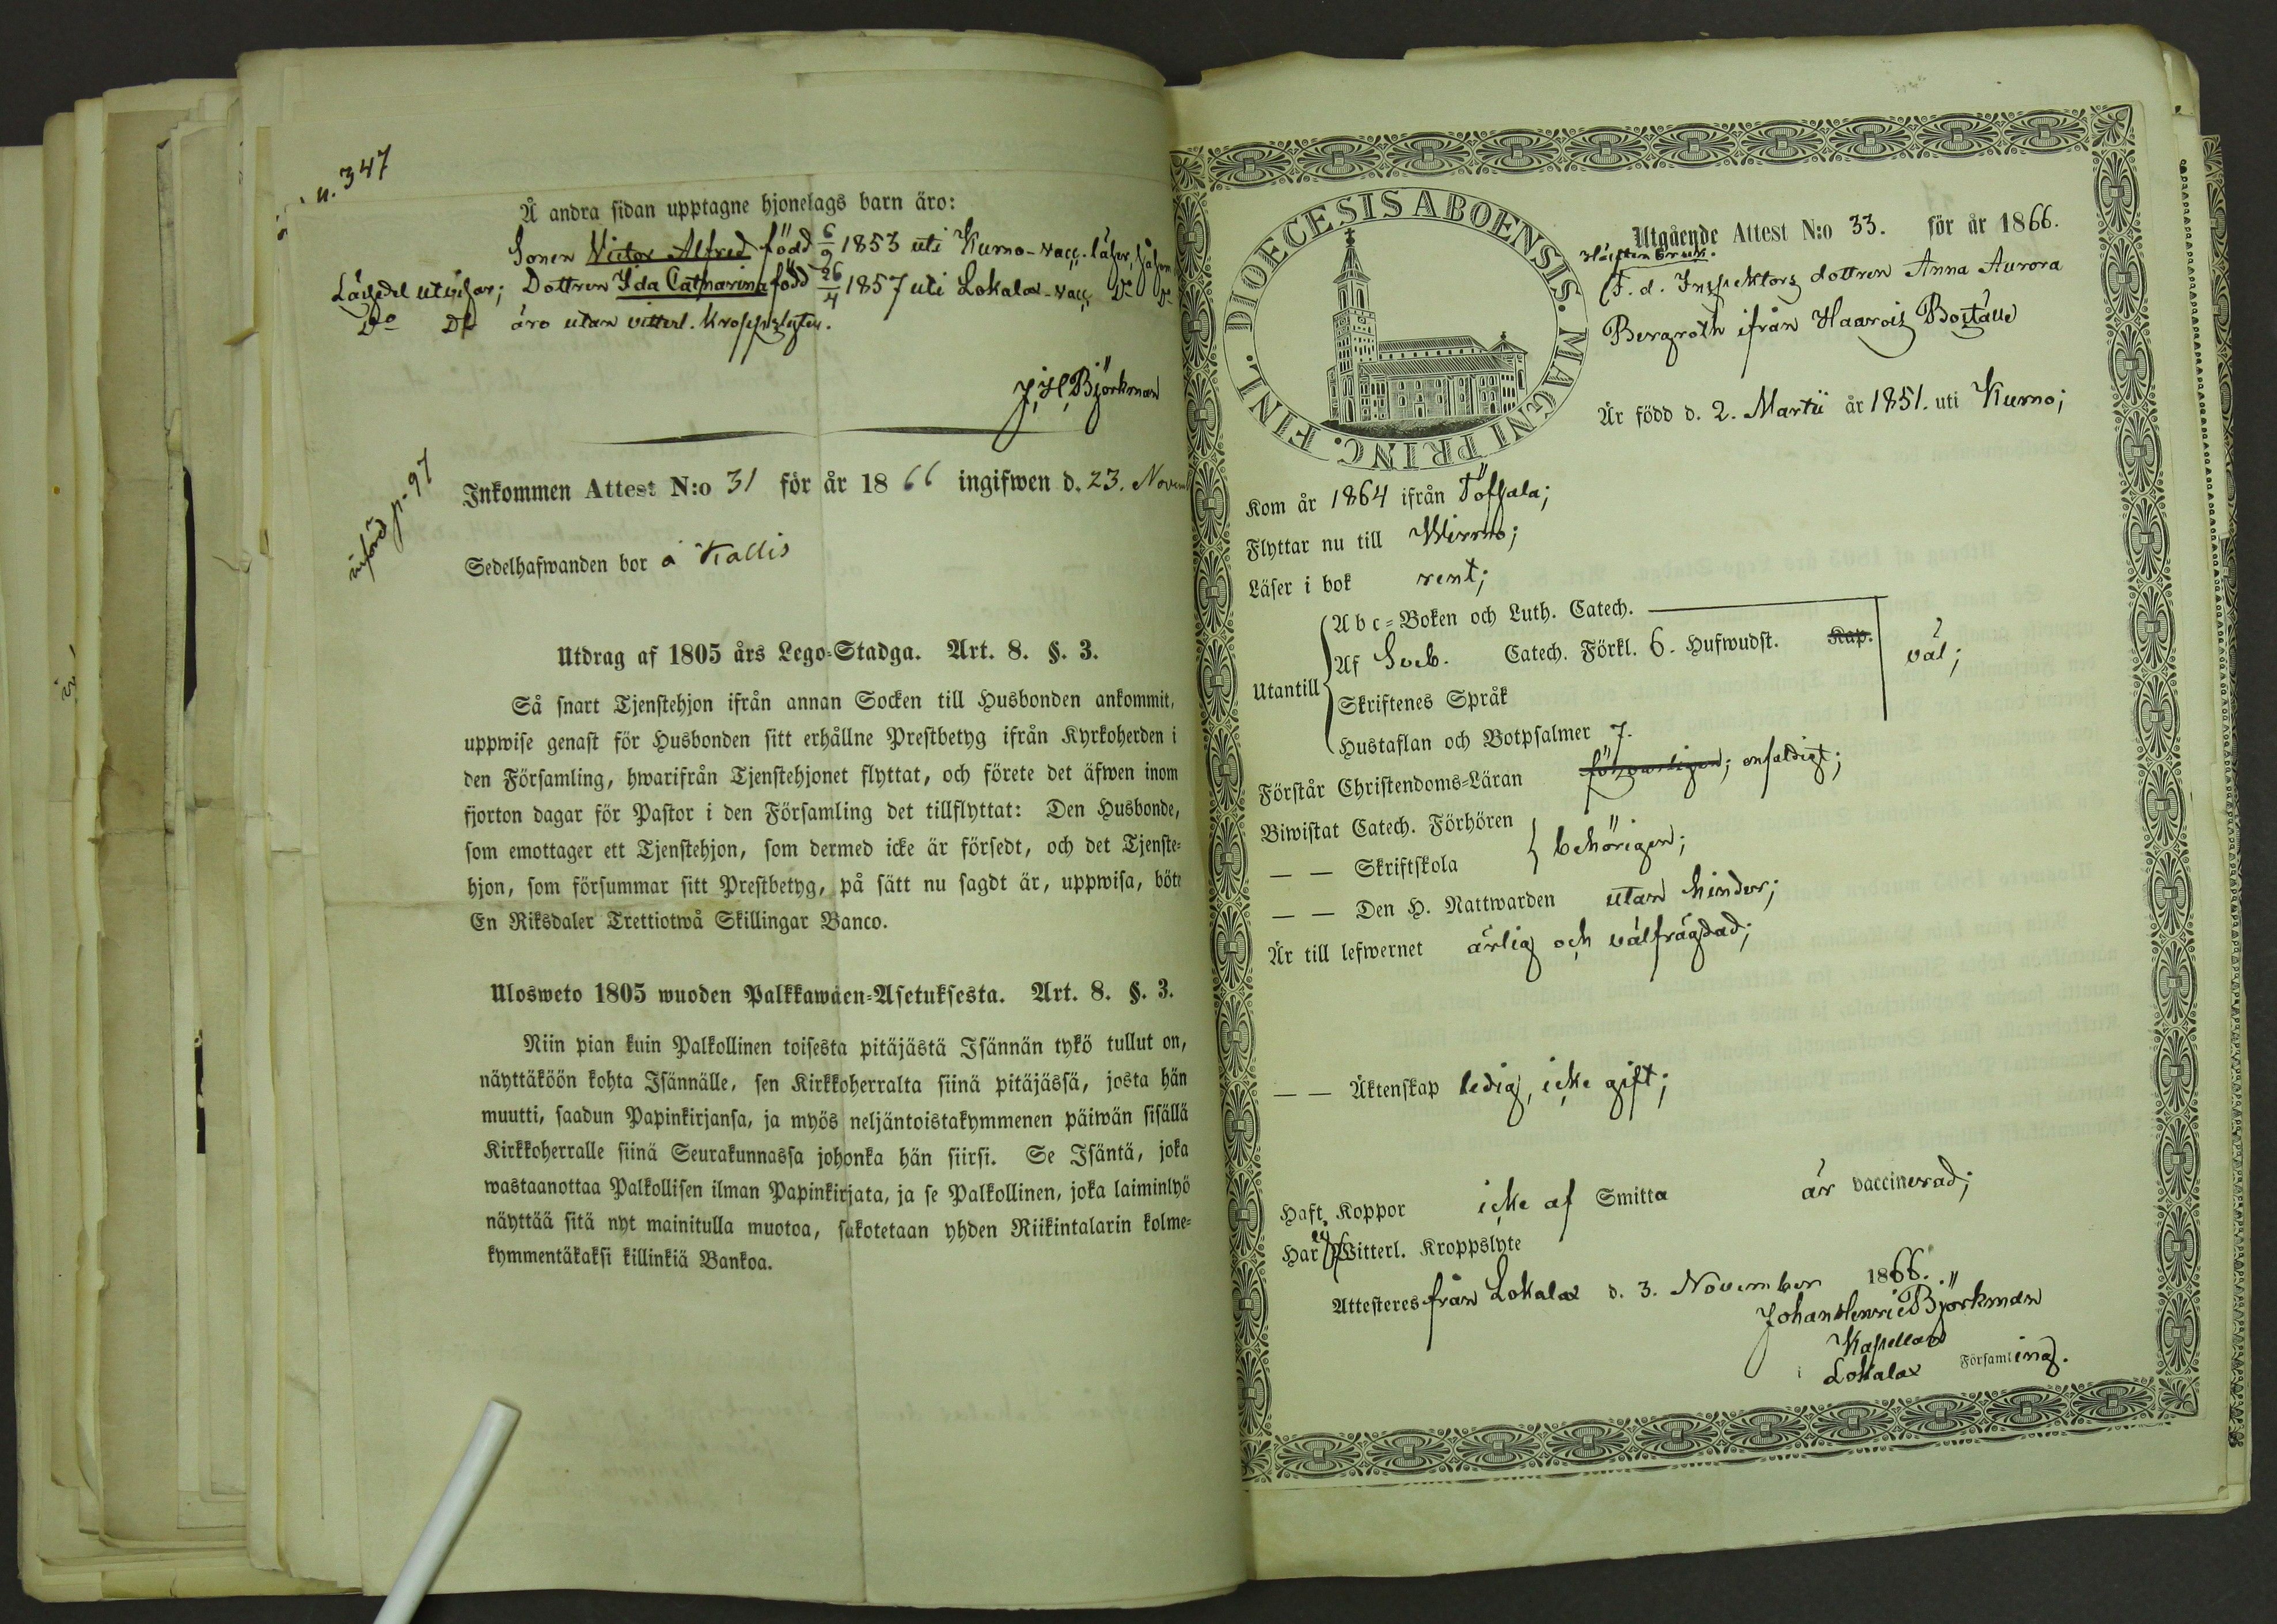 n. 347
Å andra sidan upptagne hjonelags barn äro:
Sonen Victor Alfred född 6/9 1853 uti Kumo-vacc. läser,
Läsedel utvisar; Dottren Ida Catharina född 26/4 1857 uti Lokalax-vacc. Do Do
Do Do äro utan vitterl. kroppslyten.
J. H. Björkman
införd p. 97
Inkommen Attest N:o 31 för år 1866 ingifwen d. 23. Novemb
Sedelhafwanden bor å Kallis
Utdrag af 1805 års Lego-Stadga. Art. 8. §. 3.
Så snart Tjenstehjon ifrån annan Socken till Husbonden ankommit,
uppwise genast för Husbonden sitt erhållne Prestbetyg ifrån Kyrkoherden i
den Församling, hwarifrån Tjenstehjonet flyttat, och förete det äfwen inom
fjorton dagar för Pastor i den Församling det tillflyttat: Den Husbonde,
som emottager ett Tjenstehjon, som dermed icke är försedt, och det Tjenste-
hjon, som försummar sitt Prestbetyg, på sätt nu sagdt är, uppwisa, böte
En Riksdaler Trettiotwå Skillingar Banco.
Ulosweto 1805 wuoden Palkkawäen-Asetuksesta. Art. 8. §. 3.
Niin pian kuin Palkollinen toisesta pitäjästä Isännän tykö tullut on,
näyttäköön kohta Isännälle, sen Kirkkoherralta siinä pitäjässä, josta hän
muutti, saadun Papinkirjansa, ja myös neljäntoistakymmenen päiwän sisällä
Kirkkoherralle siinä Seurakunnassa johonka hän siirsi. Se Isäntä, joka
wastaanottaa Palkollisen ilman Papinkirjata, ja se Palkollinen, joka laiminlyö
näyttää sitä nyt mainitulla muotoa, sakotetaan yhden Riikintalarin kolme-
kymmentäkaksi killinkiä Bankoa.
DIOECESIS ABOENSIS. MAGNI PRINC. FINL.
Utgående Attest N:o 33. för år 1866.
F. d. Inspektors dottren Anna Aurora
Bergroth ifrån Haarois Boställe
Är född d. 2. Martii år 1851. uti Kumo;
Kom år 1864 ifrån Töffsala;
Flyttar nu till Wirmo;
Läser i bok rent;
Utantill
Abc-Boken och Luth. Catech.
Af Sveb. Catech. Förkl. 6. Hufwudst. Kap.
väl;
Skriftenes Språk
Hustaflan och Botpsalmer 7.
Förstår Christendoms-Läran försvarligen; enfaldigt;
Biwistat Catech. Förhören
behörigen;
— — Skriftskola
— — Den H. Nattwarden utan hinder;
Är till lefwernet ärlig och välfrägdad;
— — Äktenskap ledig, icke gift;
Haft Koppor icke af Smitta är vaccinerad;
Har ej Witterl. Kroppslyte
Attesteres från Lokalax d. 3. November 1866.
Johan Henric Björkman
Kapellan
i Lokalax Församling.